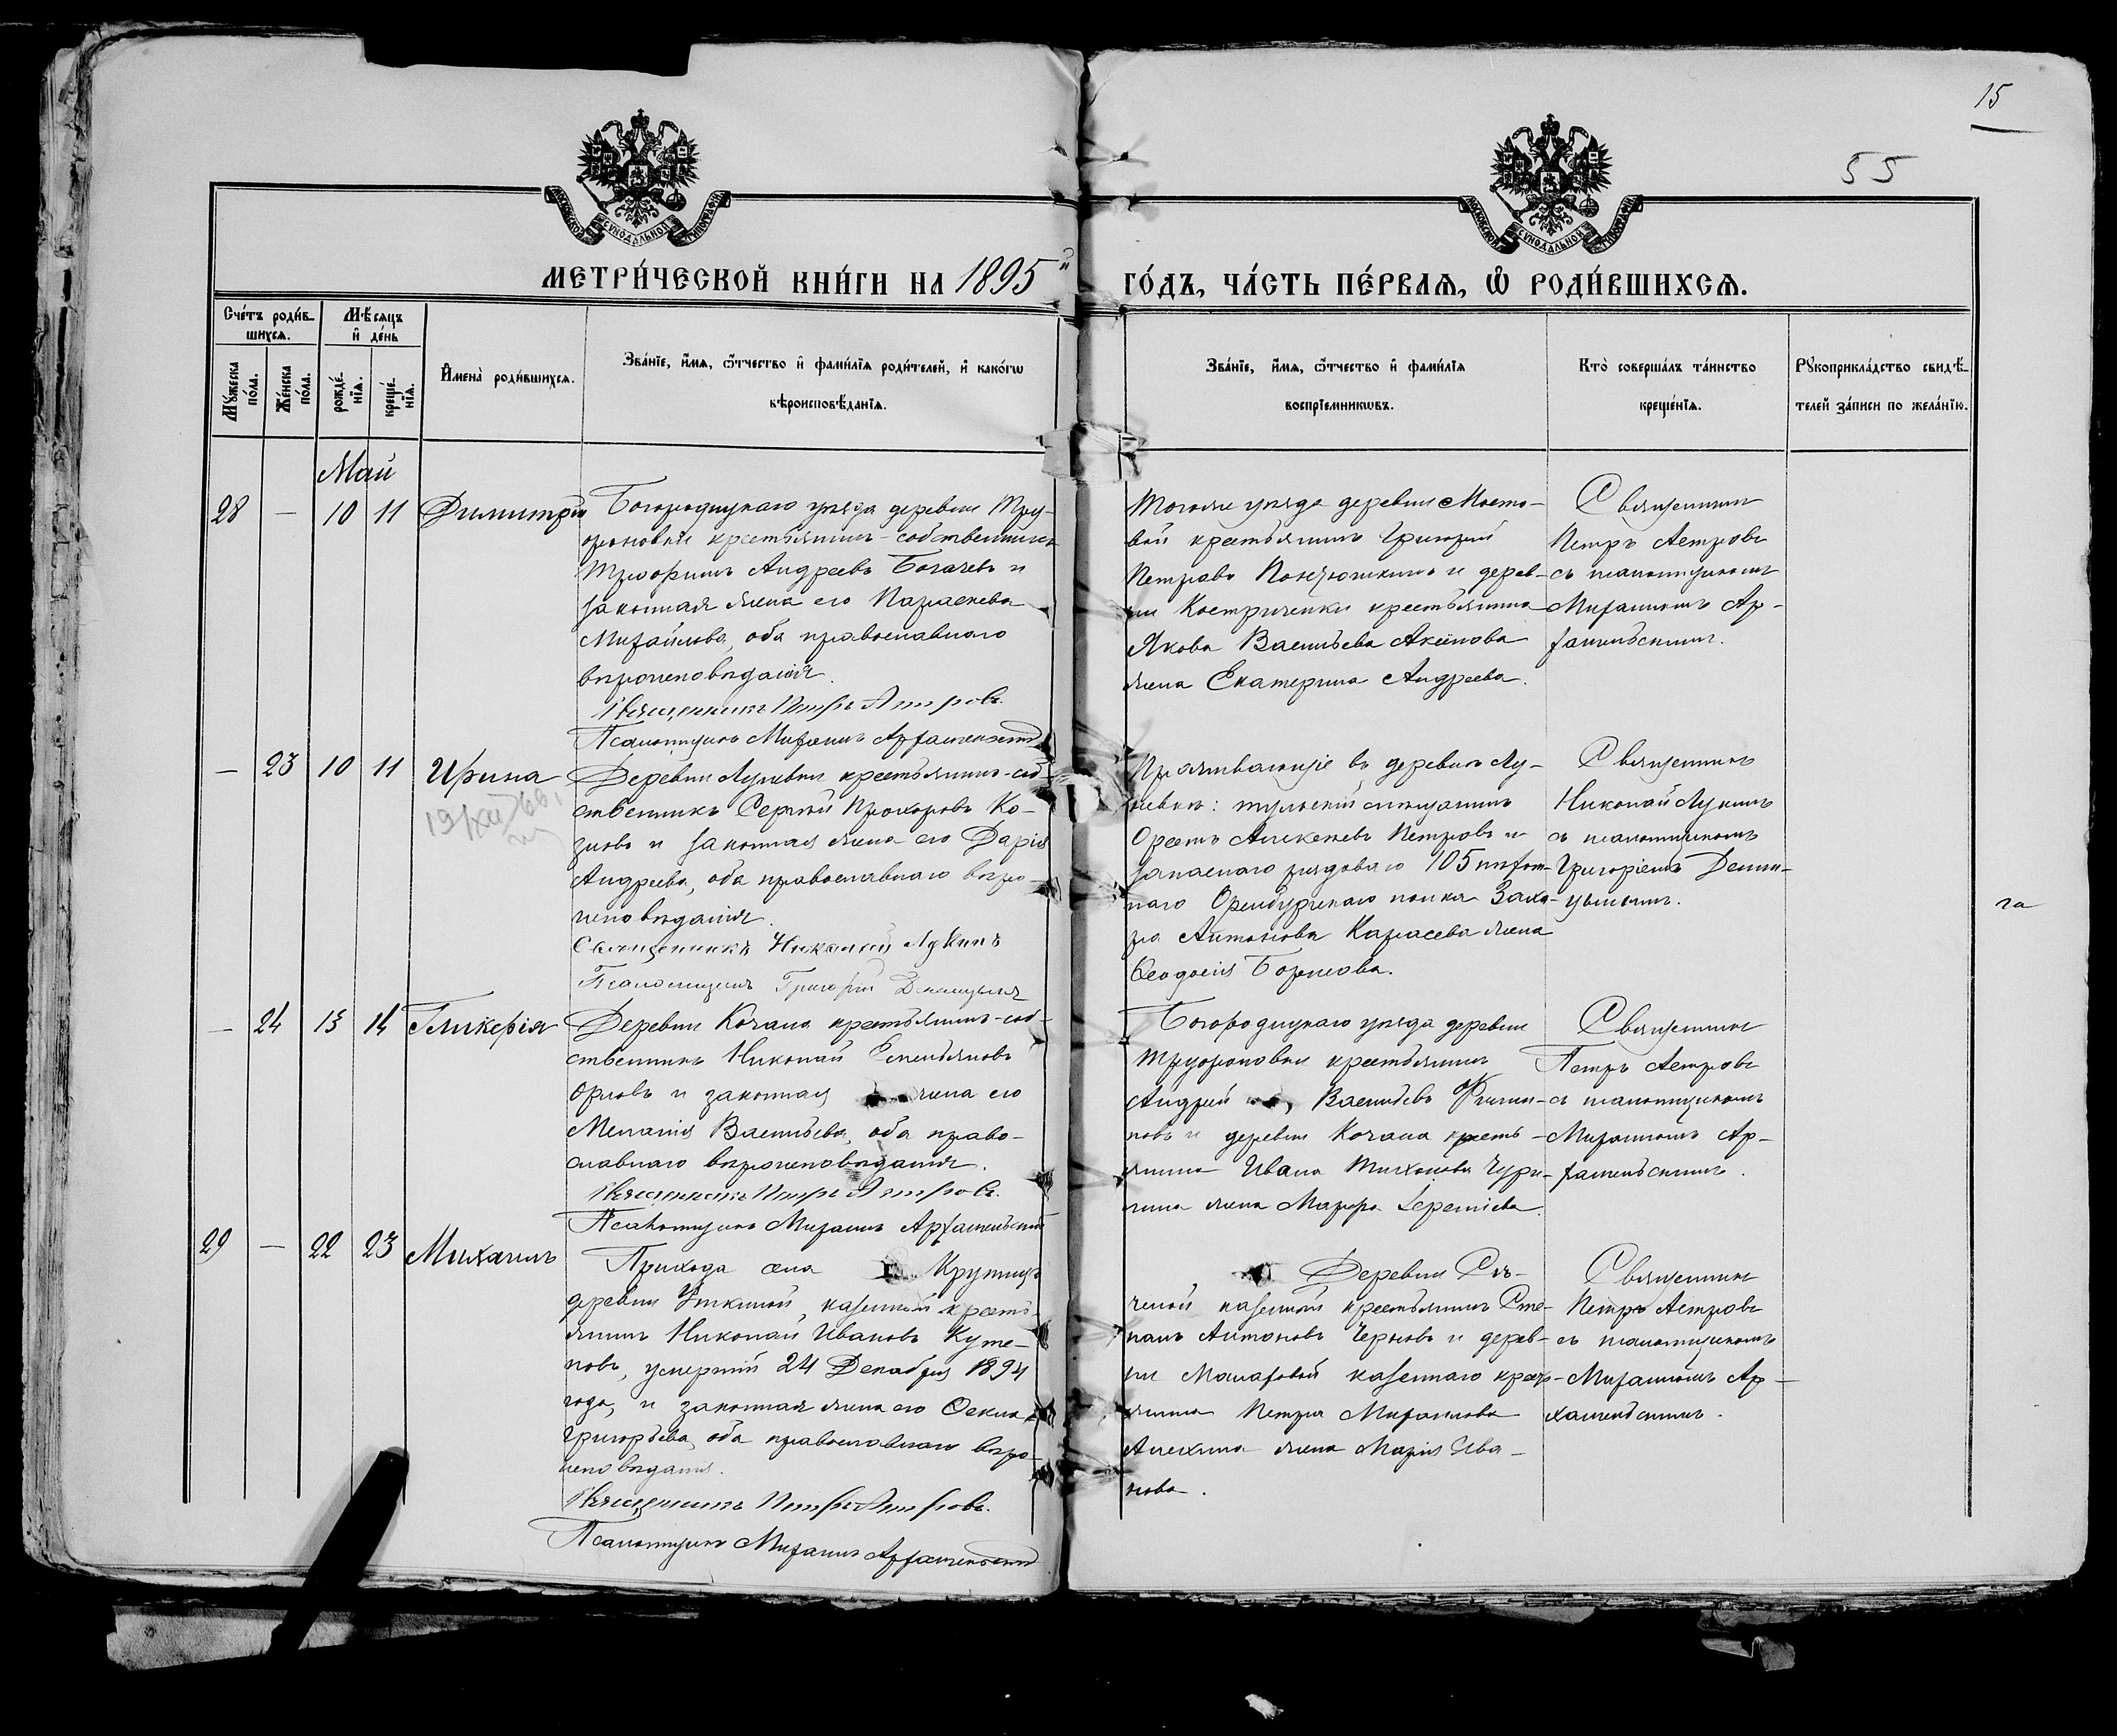 15
55
МЕТРИ́ЧЕСКОЙ КНИ́ГИ НА 1895й ГО́ДЪ, ЧА́СТЬ ПЕ́РВАѦ, Ѡ҆ РОДИ́ВШИХСѦ.
Сче́тъ роди́в-
шихсѧ.
Мѣ́сѧцъ
и҆ де́нь
Мꙋ́жеска по́ла.
Же́нска по́ла.
рожде́-
нїѧ.
креще́-
нїѧ.
И҆мена̀ роди́вшихсѧ.
Зва́нїе, и҆́мѧ, ѻ҆́тчество и҆ фами́лїѧ роди́телей, и҆ како́гѡ
вѣроисповѣ́данїѧ.
Зва́нїе, и҆́мѧ, ѻ҆́тчество и҆ фами́лїѧ
воспрїе́мникѡвъ.
Кто̀ соверша́лъ та́инство
креще́нїѧ.
Рꙋкоприкла́дство свидѣ́-
телей за́писи по жела́нїю.
Май
28 — 10 11 Димитрій
Богородицкаго уѣзда деревни Тру-
ороновки крестьянинъ-собственникъ
Трофимъ Андреевъ Богачевъ и
законная жена его Параскева
Михайлова, оба православнаго
вѣроисповѣданія.
Священникъ Петръ Петровъ.
Псаломщикъ Михаилъ Архангельскій
Тогоже уѣзда деревни Мосто-
вой крестьянинъ Григорій
Петровъ и дерев-
ни Костриченки крестьянина
Якова Васильева Акимова
жена Екатерина Андреева.
Священникъ
Петръ Петровъ
съ псаломщикомъ
Михаиломъ Ар-
хангельскимъ.
— 23 10 11 Ирина
19/XII 66
Деревни крестьянинъ-соб-
ственникъ Сергій Прохоровъ Ко-
зловъ и законная жена его Дарія
Андреева, оба православнаго вѣро-
исповѣданія.
Священникъ Николай Лукинъ
Псаломщикъ Григорій
Проживающіе въ деревнѣ Лу-
: тульскій мѣщанинъ
Орестъ Алексѣевъ Петровъ и
запаснаго рядоваго 105 пѣхот-
наго Оренбургскаго полка Заха-
ра Антонова Карасева жена
Ѳеодосія Борисова.
Священникъ
Николай Лукинъ
съ псаломщикомъ
Григоріемъ
га
— 24 13 14 Гликерія
Деревни Кочана крестьянинъ-соб-
ственникъ Николай Емельяновъ
Орловъ и законная жена его
Меланія Васильева, оба право-
славнаго вѣроисповѣданія.
Священникъ Петръ Петровъ.
Псаломщикъ Михаилъ Архангельскій
Богородицкаго уѣзда деревни
крестьянинъ
Андрей Васильевъ Филип-
повъ и деревни Кочана кресть-
янина Ивана Тихонова Чури-
лина жена Марѳа Сергѣева.
Священникъ
Петръ Петровъ
съ псаломщикомъ
Михаиломъ Ар-
хангельскимъ.
29 — 22 23 Михаилъ
Прихода села Крутицъ
деревни Уткиной казенный кресть-
янинъ Николай Ивановъ Куте-
повъ, умершій 24 Декабря 1894
года, и законная жена его Ѳекла
Григорьева, оба православнаго вѣро-
исповѣданія.
Священникъ Петръ Петровъ.
Псаломщикъ Михаилъ Архангельскій
Деревни
казенный крестьянинъ Сте-
панъ Антоновъ Черновъ и дерев-
ни Малаховой казеннаго кресть-
янина Петра Михаилова
Алехина жена Марія Ива-
нова.
Священникъ
Петръ Петровъ
съ псаломщикомъ
Михаиломъ Ар-
хангельскимъ.